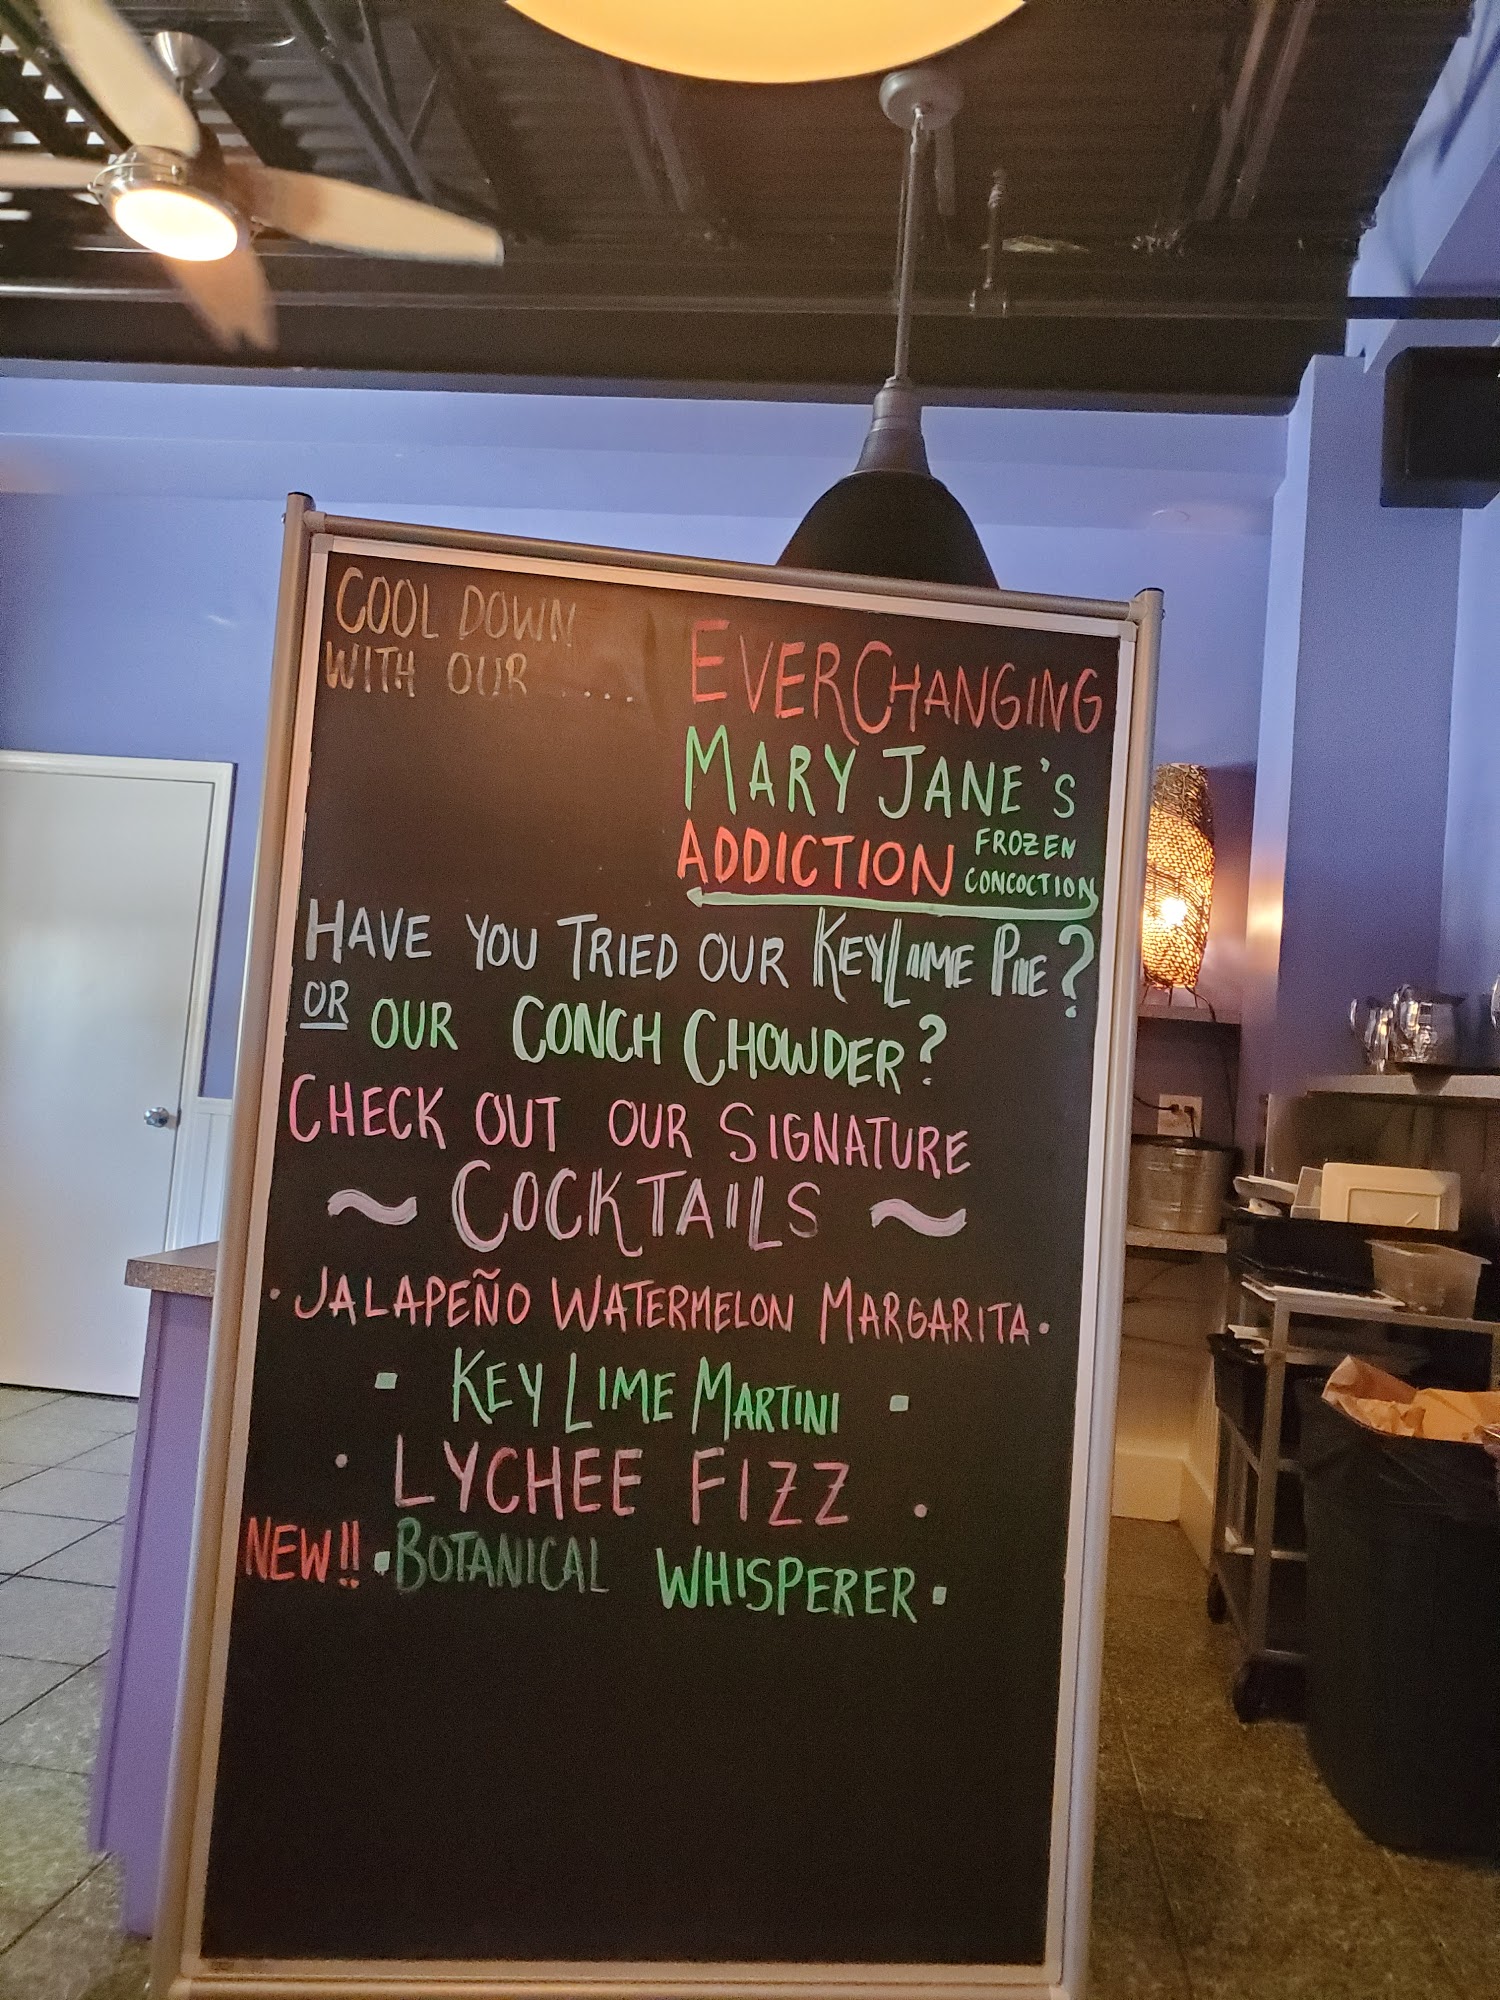 COOL DOWN
WITH OUR ....
EVERCHANGING
MARY JANE'S
ADDICTION FROZEN
CONCOCTION
HAVE YOU TRIED OUR KEYLIME PIE?
OR OUR CONCH CHOWDER?
CHECK OUT OUR SIGNATURE
~ COCKTAILS ~
· JALAPEÑO WATERMELON MARGARITA ·
· KEY LIME MARTINI ·
· LYCHEE FIZZ ·
NEW!! · BOTANICAL WHISPERER ·